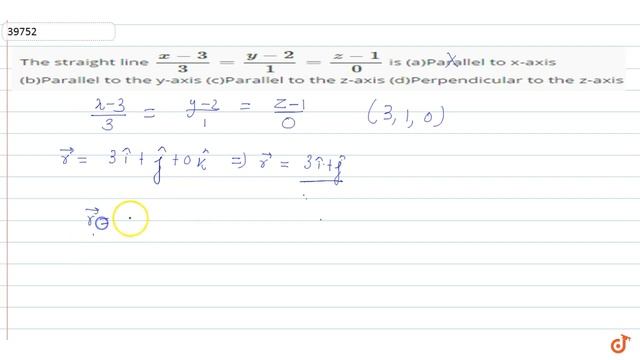 39752
The straight line \frac{x-3}{3} = \frac{y-2}{1} = \frac{z-1}{0} is (a)Parallel to x-axis
(b)Parallel to the y-axis (c)Parallel to the z-axis (d)Perpendicular to the z-axis
\frac{x-3}{3} = \frac{y-2}{1} = \frac{z-1}{0} (3, 1, 0)
\vec{r} = 3\hat{i} + \hat{j} + 0\hat{k} ⇒ \vec{r} = 3\hat{i} + \hat{j}
\vec{r} =
doubtnut